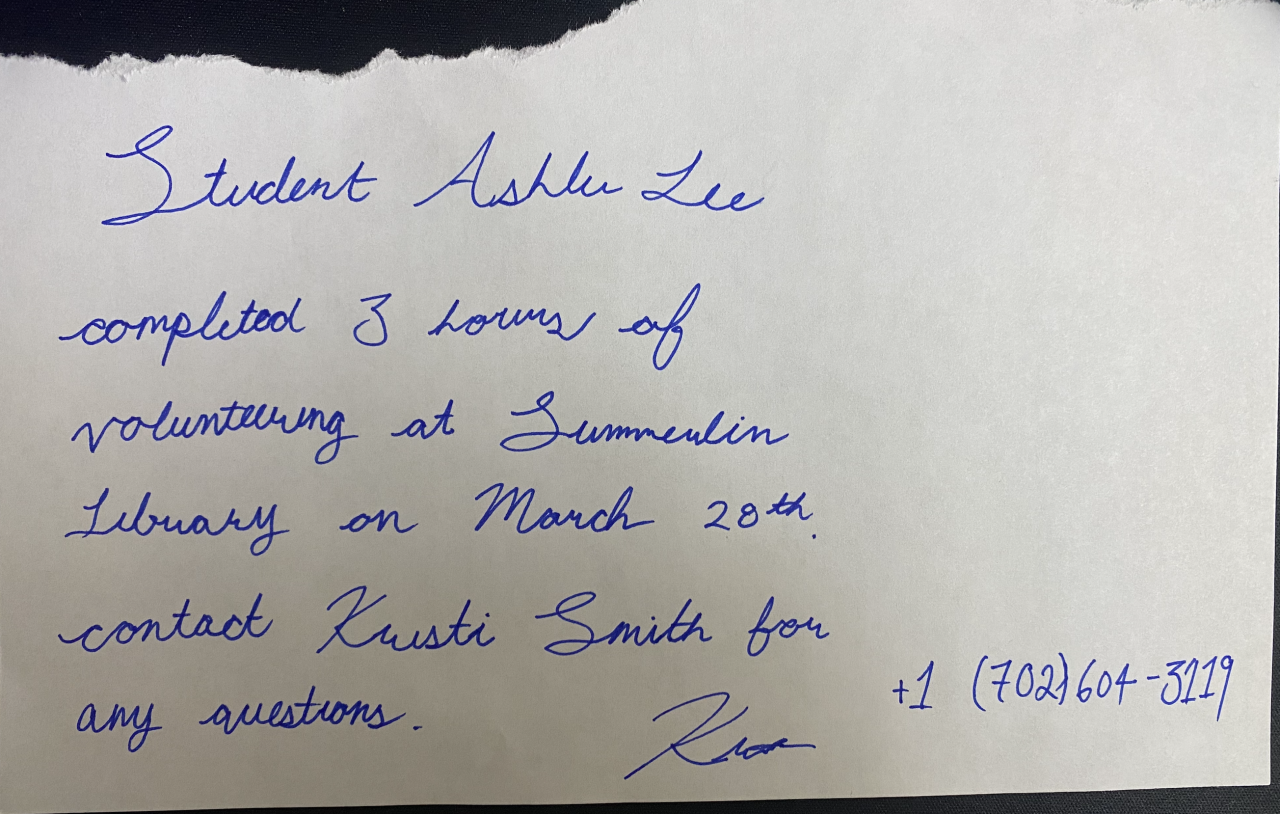 Student Ashlee Lee
completed 3 hours of
volunteering at Summerlin
Library on March 28th.
contact Kristi Smith for
any questions.
+1 (702) 604-3119